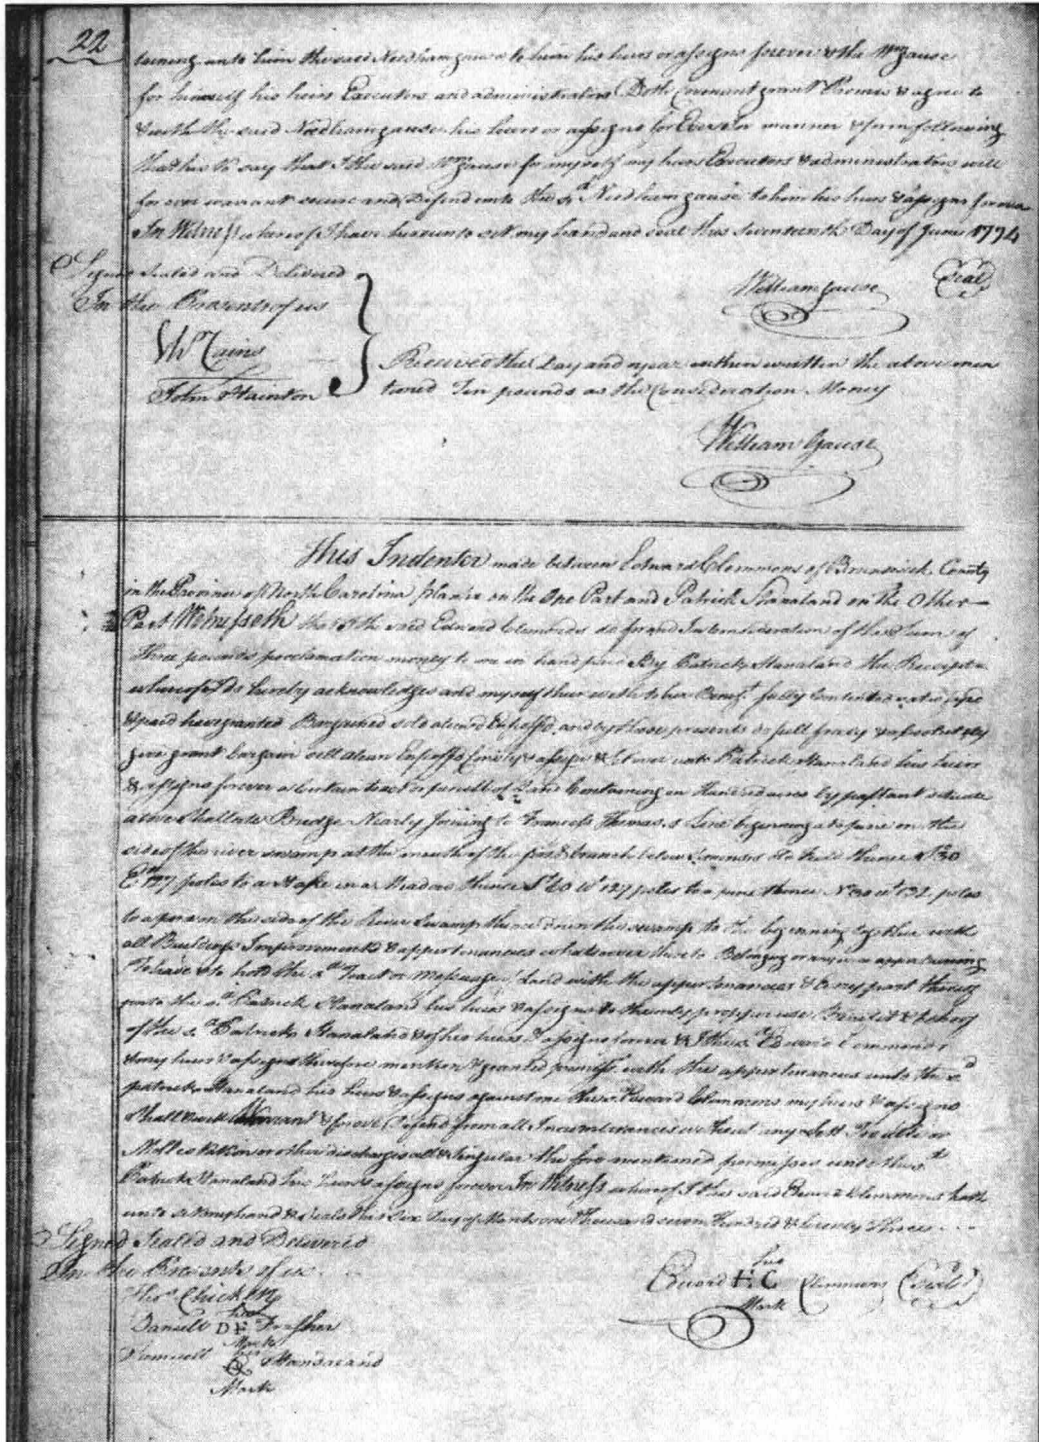 22
taining unto him the said Needham Gause to him his heirs or assigns forever & the Wm Gause
for himself his heirs Executors and administrators Doth Covenant grant Promis & agree to
& with the said Needham Gause his heirs or assigns for Ever in manner & form following
that is to say that I the said Wm Gause for myself my heirs Executors & administrators will
for ever warrant secure and Defend unto the sd Needham Gause to him his heirs & assigns forever
In Witness whereof I have hereunto set my hand and seal this Seventeenth Day of June 1794
Signed Sealed and Delivered
In the Presents of us
William Gause Seal
Wm Cains
John Stainton
Received the Day and year within written the above men
tioned Ten pounds as the Consideration Money
William Gause
This Indenter made between Edward Clemmons of Brunswick County
in the Province of North Carolina planter on the One Part and Patrick Stanaland on the Other
Part Witnesseth that the said Edward Clemonds do for and In Consideration of the Sum of
Three pounds proclamation money to me in hand paid By Patrick Stanaland the Receipt
whereof I do hereby acknowledge and myself therewith to be fully Contented
& paid have granted Bargained sold and by these presents do full freely & absolutely
give grant bargain sell alien & assign unto Patrick Stanaland his heirs
& assigns forever a Certain tract or parcell of Land Containing on Hundred acres situate
above Shallots Bridge Nearly Joining to Francis Thomas,s Line beginning at a pine on the
side of the river swamp at the mouth of the first branch below thence
E 127 poles to a Stake in a Meadow thence 127 poles to a pine thence 132 poles
to a pine on the side of the River Swamp thence down the swamp to the beginning together with
all Buildings Improvements & appurtenances whatsoever thereto Belonging or any wise appertaining
To have & to hold the sd Tract or Messuage Land with the appurtenances & Every part thereof
unto the sd Patrick Stanaland his heirs & assigns to the only proper use Benefit & behoof
of the sd Patrick Stanaland & of his heirs & assigns forever & I the sd Edward Clemmons
& my heirs & assigns the before mention & granted with the appurtenances unto the sd
patrick Stanaland his heirs & assigns against me the sd Edward Clemmons my heirs & assigns
Shall Warrant & forever Defend from all Incumberances without any Lett Trouble or
or other discharges all & singular the fore mentioned premises unto the sd
Patrick Stanaland his heirs & assigns forever In Witness whereof I the said Edward Clemmons hath
unto set my hand & seal this Six Day of one Thousand seven Hundred & Seventy Three
Signed Sealed and Delivered
In the Presents of us
his
Edward E C Clemmons Seal
Mark
his
Daniell D F Frasher
Mark
his
Samuell Stanaland
Mark